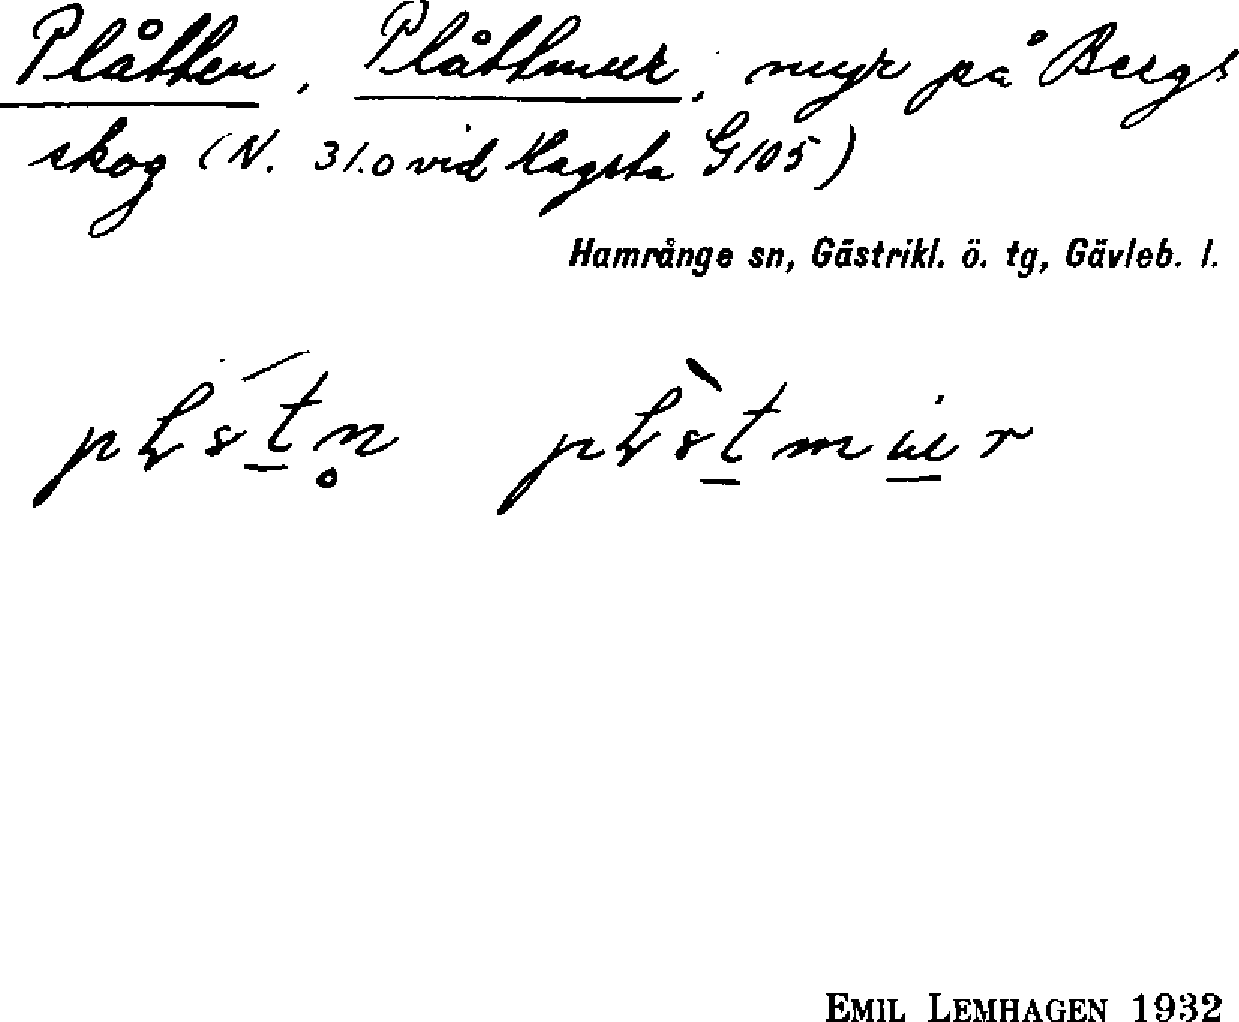 Plåtten, Plåttmur, myr på Bergs
skog (N. 31.0 vid Hagsta G105)
Hamrånge sn, Gästrikl. ö. tg, Gävleb. l.
EMIL LEMHAGEN 1932